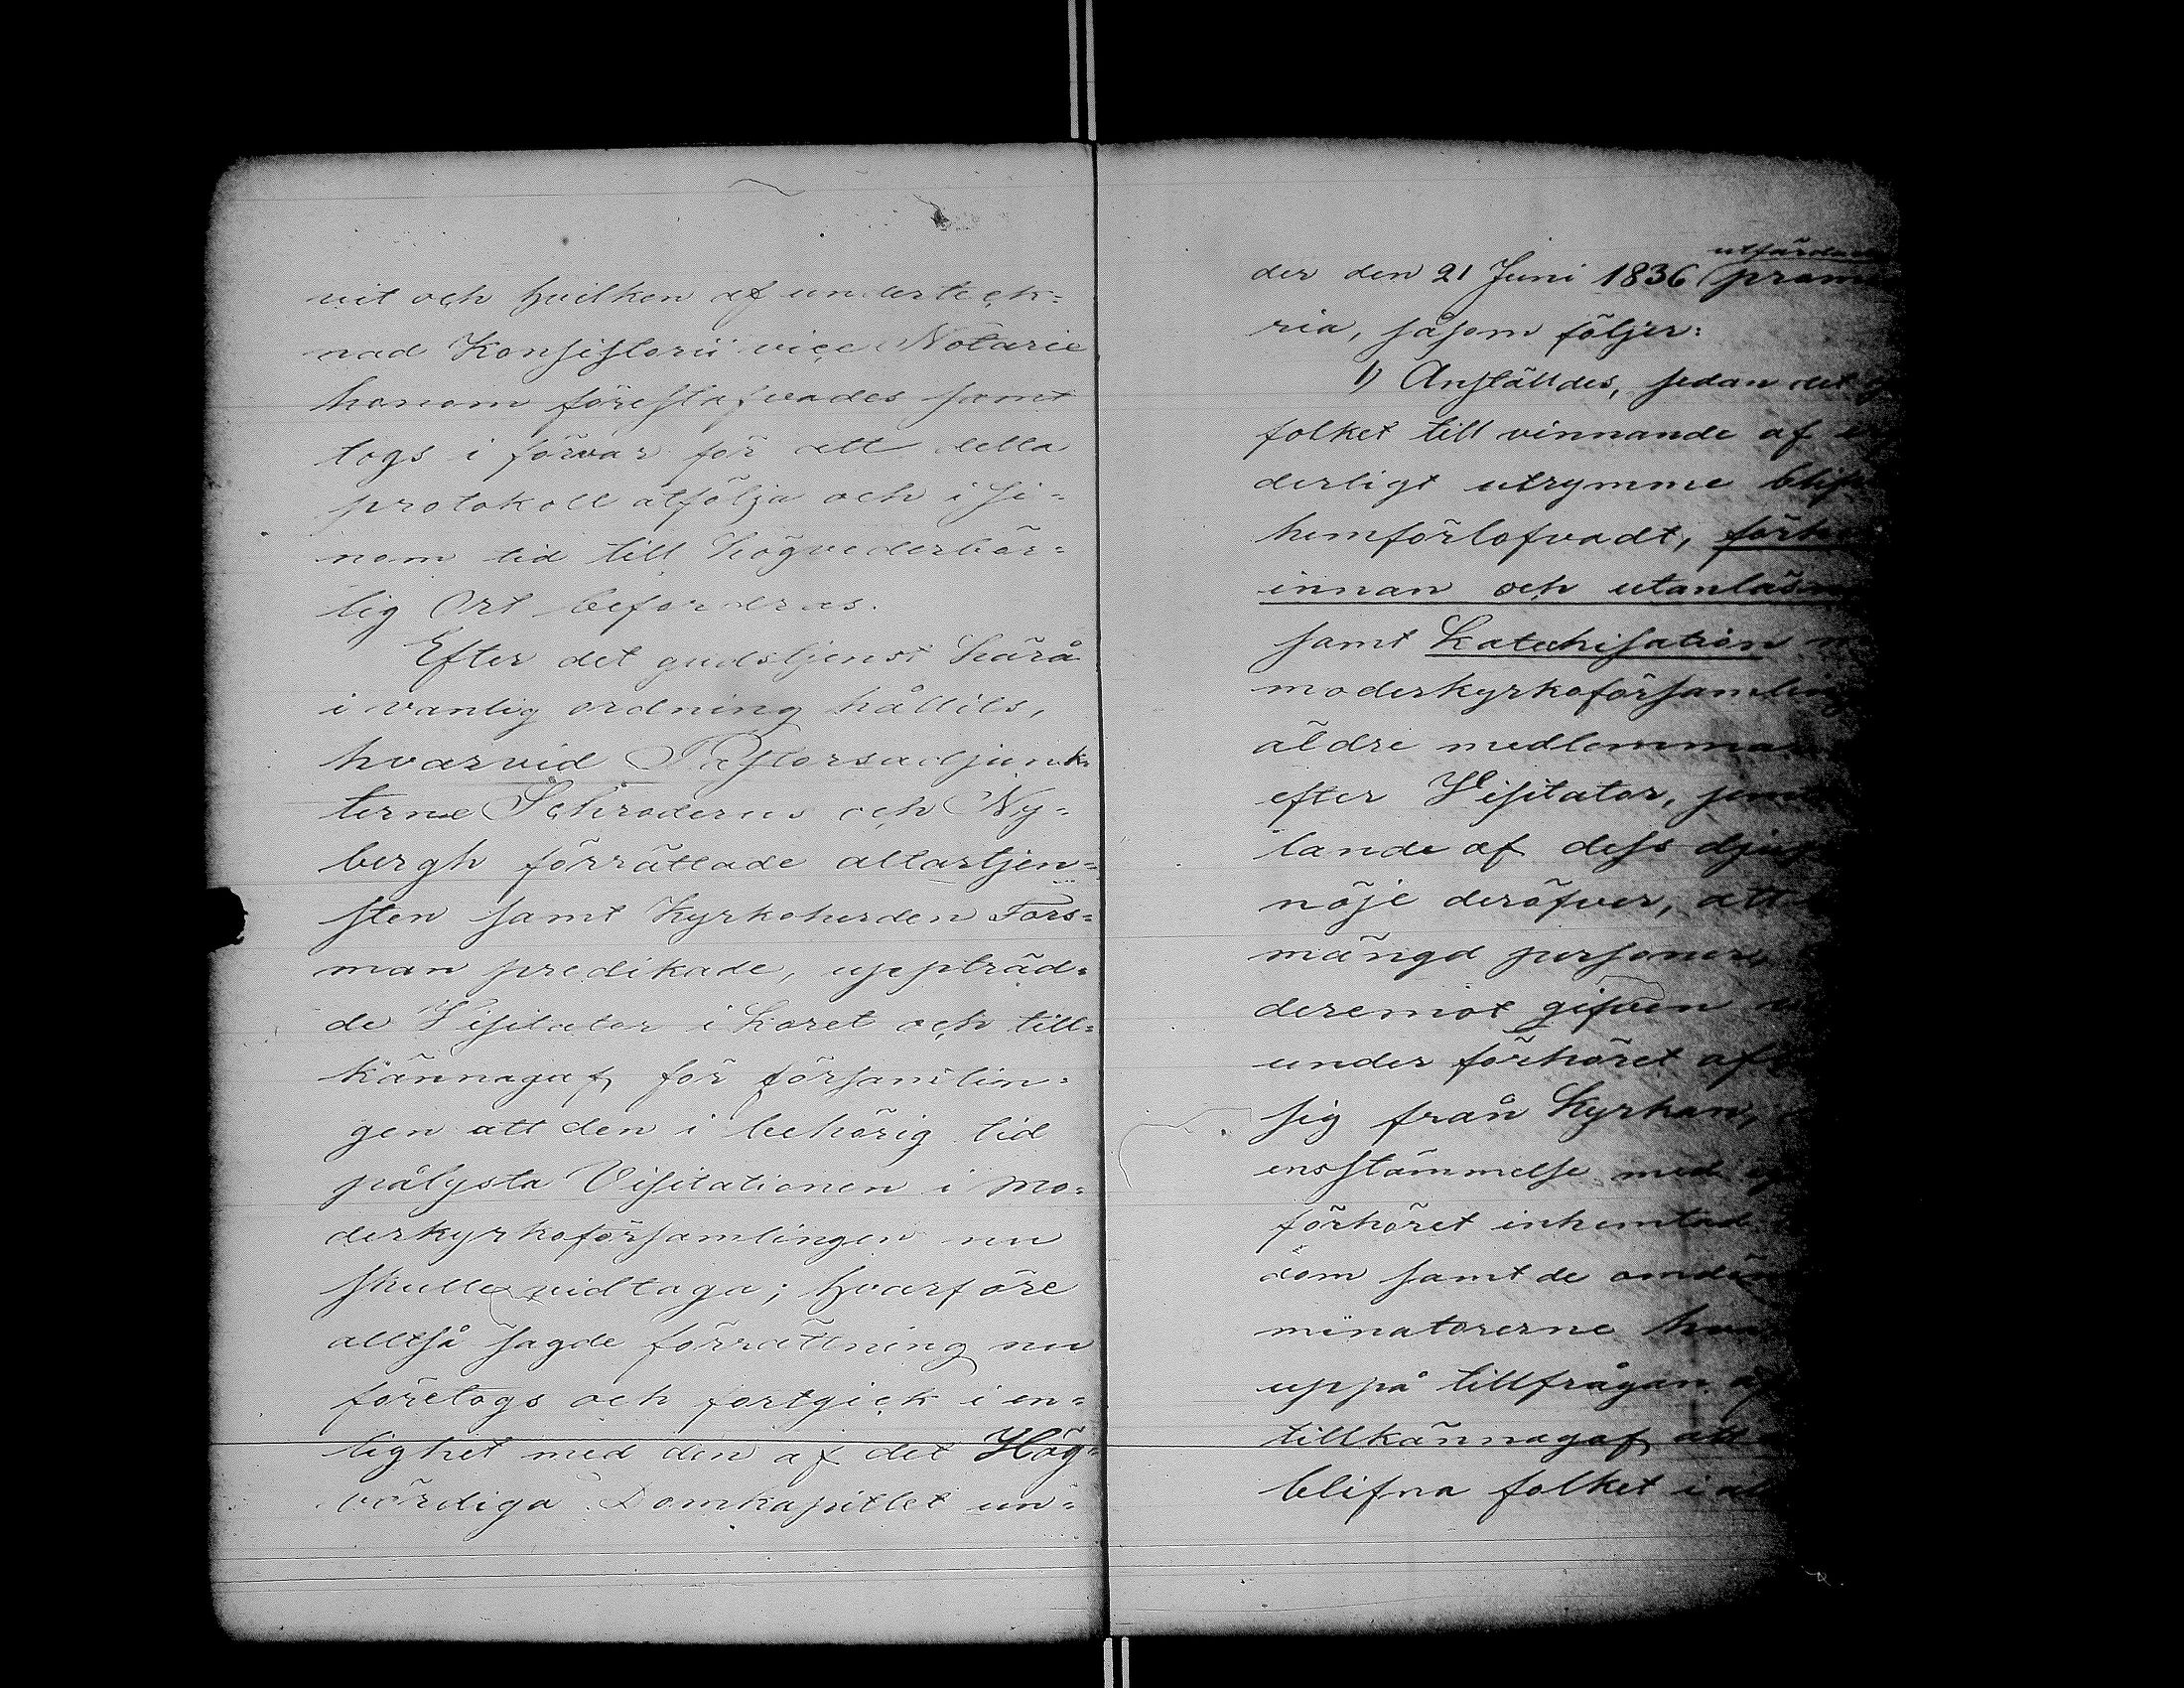 vit och hvilken af underteck=
nad Konsistorii vice Notarie
honom förestafvades samt
togs i förvar för att detta
protokoll åtfölja och i si=
nom tid till högvederbör=
lig Ort befordras.
Efter det gudstjenst härå
i vanlig ordning hållits,
hvarvid Pastorsadjunk=
terne Schroderus och Ny=
bergh förrättade altartjen=
sten samt Kyrkoherden Fors=
man predikade, uppträd=
de Visitator i koret och till=
kännagaf för församlin=
gen att den i behörig tid
pålysta Visitationen i mo=
derkyrkoförsamlingen nu
skulle vidtaga; hvarföre
alltså sagde förrättning nu
företogs och fortgick i en=
lighet med den af det Hög=
vördiga Domkapitlet un=
der den 21 Juni 1836
ria, såsom följer:
1) Anställdes, sedan det
folket till vinnande af
derligt utrymme
hemförlofvadt,
innan och
samt Katechisation
moderkyrkoförsamling
äldre medlemmar
efter Visitator,
lande af dess
nöje deröfver, att
mängd personer,
deremot gifven
under förhöret
sig från Kyrkan,
ensstämmelse med
förhöret
dom samt de
minatorerne
uppå tillfrågan af
tillkännagaf, att
blifna folket i